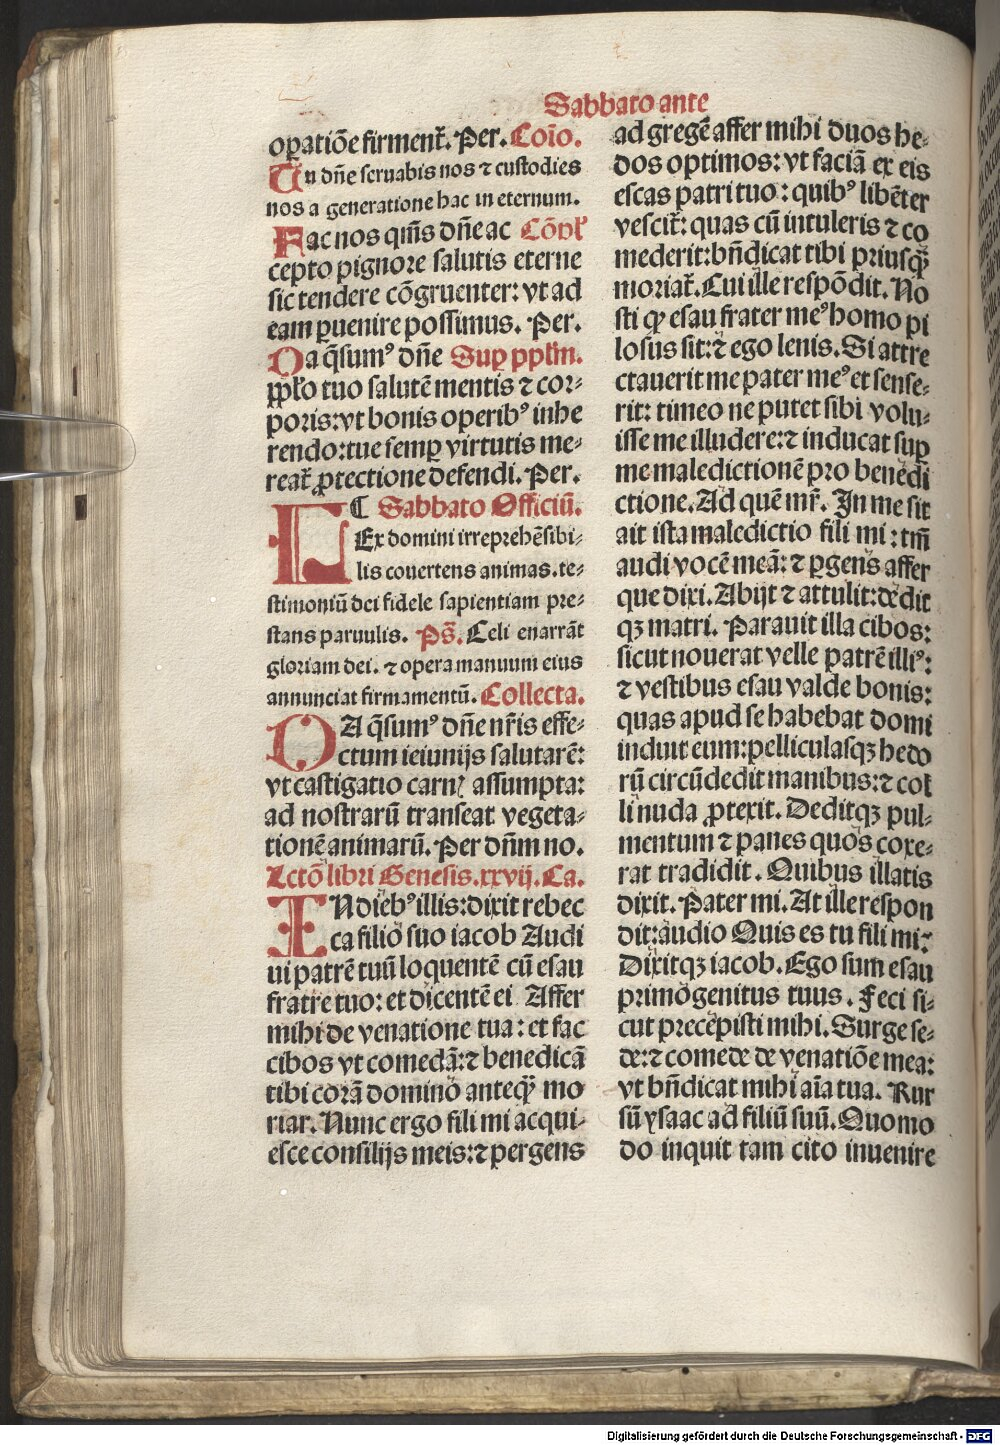 Sabbato ante
oꝑatiōe firment᷑. Per. Coi̅o.
Tu dn̄e seruabis nos ⁊ custodies
nos a generatione hac in eternum.
Fac nos qn̄s dn̄e ac Cōpl̄
cepto pignore salutis eterne
sic tendere cōgruenter: vt ad
eam ꝑuenire possimus. Per.
Da q̄sumꝰ dn̄e Suꝑ pplm̄.
ppl̄o tuo salutē mentis ⁊ cor⸗
poris: vt bonis operibꝰ inhe
rendo: tue semꝑ virtutis me⸗
reat᷑ ꝓtectione defendi. Per.
¶ Sabbato Officiū.
LEx domini irreprehēsibi⸗
lis couertens animas. te⸗
stimoniū dei fidele sapientiam pre⸗
stans paruulis. Ps̄. Celi enarrāt
gloriam dei. ⁊ opera manuum eius
annunciat firmamentū. Collecta.
DA q̄sumꝰ dn̄e nr̄is effe⸗
ctum ieiunijs salutarē:
vt castigatio carnꝭ assumpta:
ad nostrarū transeat vegeta⸗
tionē animarū. Per dn̄m no.
Lctō libri Genesis. xxvij. Ca.
IN diebꝰ illis: dixit rebec
ca filio suo iacob Audi
ui patrē tuū loquentē cū esau
fratre tuo: et dicentē ei Affer
mihi de venatione tua: et fac
cibos vt comedā: ⁊ benedicā
tibi corā domino anteqꝫ̄ mo
riar. Nunc ergo fili mi acqui⸗
esce consilijs meis: ⁊ pergens
ad gregē affer mihi duos he⸗
dos optimos: vt faciā ex eis
escas patri tuo: quibꝰ libēter
vescit᷑: quas cū intuleris ⁊ co
mederit: bn̄dicat tibi priusqꝫ̄
moriat᷑. Cui ille respōdit. No
sti ꝙ esau frater meꝰ homo pi
losus sit: ⁊ ego lenis. Si attre
ctauerit me pater meꝰ et sense⸗
rit: timeo ne putet sibi volu⸗
isse me illudere: ⁊ inducat suꝑ
me maledictionē pro benedi
ctione. Ad quē mr̄. In me sit
ait ista maledictio fili mi: tm̄
audi vocē meā: ⁊ ꝑgens affer
que dixi. Abijt ⁊ attulit: dedit
qꝫ matri. Parauit illa cibos:
sicut nouerat velle patrē illiꝰ:
⁊ vestibus esau valde bonis:
quas apud se habebat domi
induit eum: pelliculasqꝫ hedo
rū circūdedit manibus: ⁊ col
li nuda ꝓtexit. Deditqꝫ pul⸗
mentum ⁊ panes quos coxe⸗
rat tradidit. Quibus illatis
dixit. Pater mi. At ille respon
dit: audio Quis es tu fili mi?
Dixitqꝫ iacob. Ego sum esau
primogenitus tuus. Feci si⸗
cut precepisti mihi. Surge se⸗
de: ⁊ comede de venatiōe mea:
vt bn̄dicat mihi aīa tua. Rur
sū ysaac ad filiū suū. Quomo
do inquit tam cito inuenire
Digitalisierung gefördert durch die Deutsche Forschungsgemeinschaft - DFG